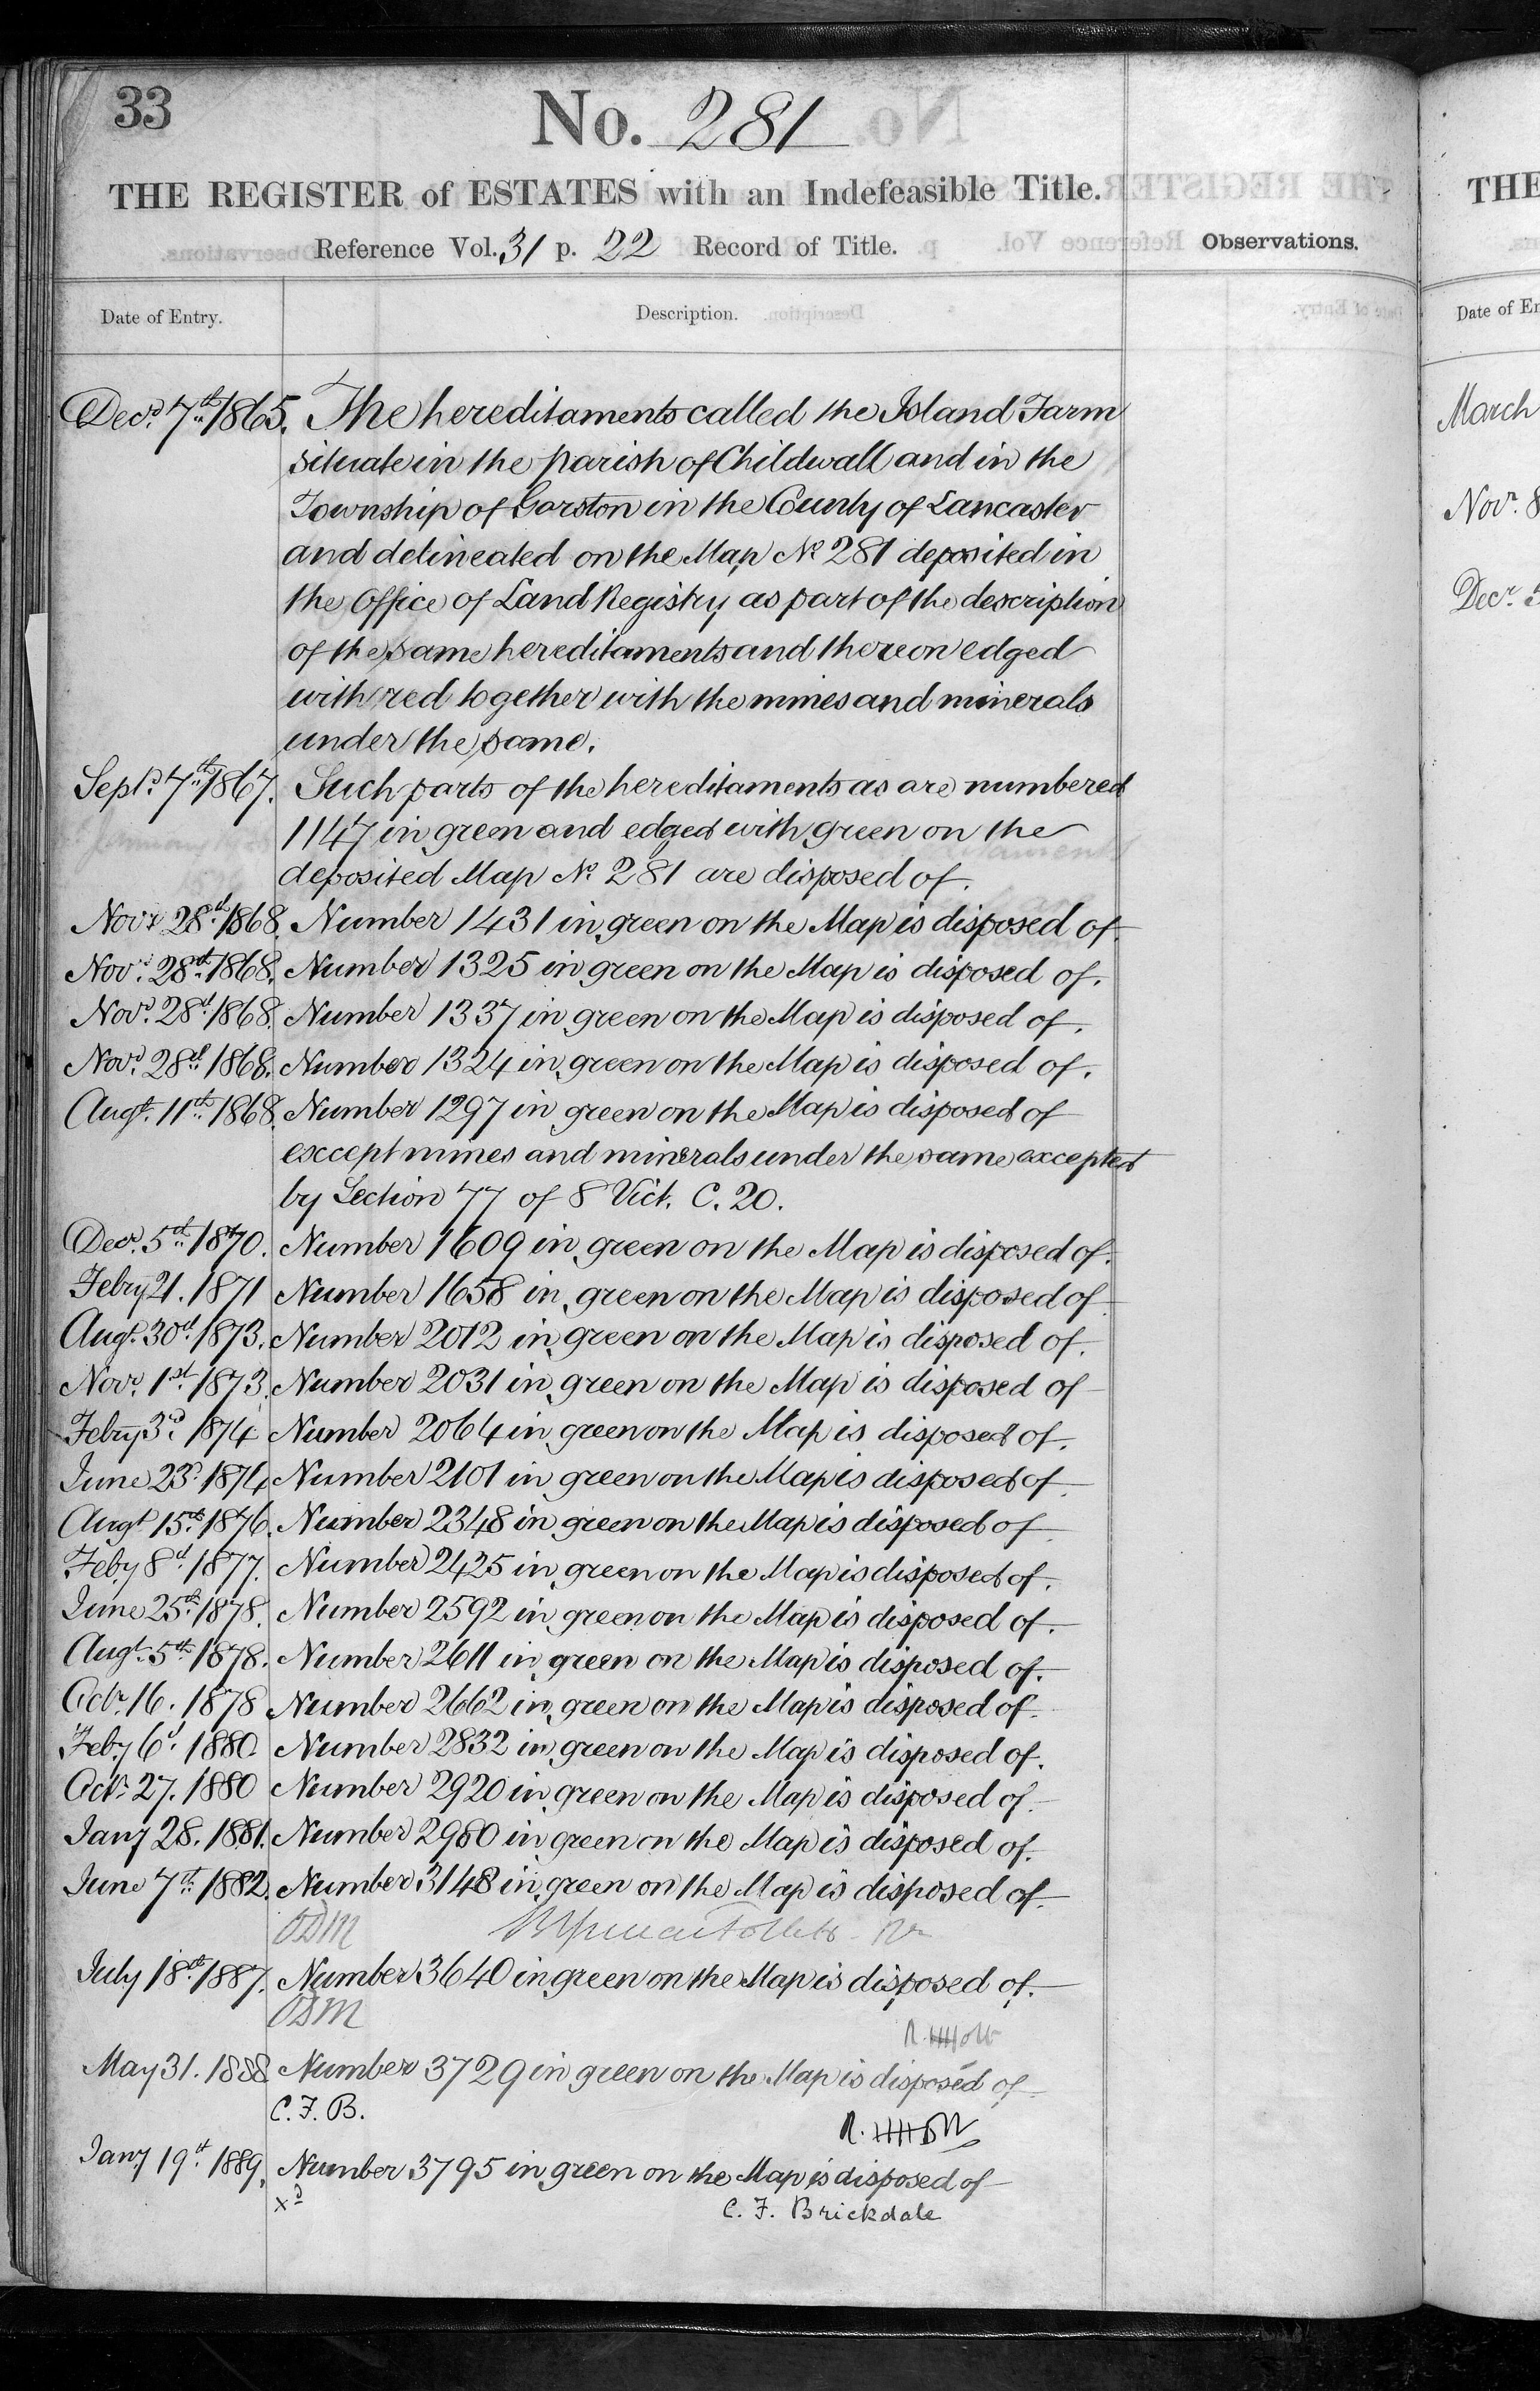 33
No. 281
THE REGISTER of ESTATES with an Indefeasible Title.
Reference Vol. 31 p. 22 Record of Title.
Observations.
Date of Entry. Description.
Decr. 7th 1865. The hereditaments called the Island Farm
situate in the parish of Childwall and in the
Township of Garston in the County of Lancaster
and delineated on the Map No 281 deposited in
the Office of Land Registry as part of the description
of the same hereditaments and thereon edged
with red together with the mines and minerals
under the same.
Septr. 7th 1867. Such parts of the hereditaments as are numbered
1147 in green and edged with green on the
deposited Map No. 281 are disposed of.
Novr 28th 1868. Number 1431 in green on the Map is disposed of.
Novr. 28th 1868. Number 1325 in green on the Map is disposed of.
Novr. 28th 1868. Number 1337 in green on the Map is disposed of.
Novr. 28th 1868. Number 1324 in green on the Map is disposed of.
Augt. 11th 1868. Number 1297 in green on the Map is disposed of
except mines and minerals under the same excepted
by Section 77 of 8 Vict. C. 20.
Decr. 5th 1870. Number 1609 in green on the Map is disposed of.
Febry 21. 1871 Number 1658 in green on the Map is disposed of
Augt. 30th 1873. Number 2012 in green on the Map is disposed of.
Novr. 1st 1873. Number 2031 in green on the Map is disposed of
Febry 3rd 1874 Number 2064 in green on the Map is disposed of.
June 23rd 1874 Number 2101 in green on the Map is disposed of.
Augt 15th 1876. Number 2348 in green on the Map is disposed of
Feby 8th 1877. Number 2425 in green on the Map is disposed of.
June 25th 1878. Number 2592 in green on the Map is disposed of.
Augt. 5th 1878. Number 2611 in green on the Map is disposed of.
Octr. 16. 1878 Number 2662 in green on the Map is disposed of.
Feby 6th 1880. Number 2832 in green on the Map is disposed of.
Octr. 27. 1880 Number 2920 in green on the Map is disposed of.
Jany 28. 1881. Number 2980 in green on the Map is disposed of.
June 7th 1882. Number 3148 in green on the Map is disposed of.
July 18th 1887. Number 3640 in green on the Map is disposed of.
May 31. 1888 Number 3729 in green on the Map is disposed of
C. F. B.
Jany 19th 1889. Number 3795 in green on the Map is disposed of
C. F. Brickdale
THE
Date of En
March
Novr. 8
Decr. 5